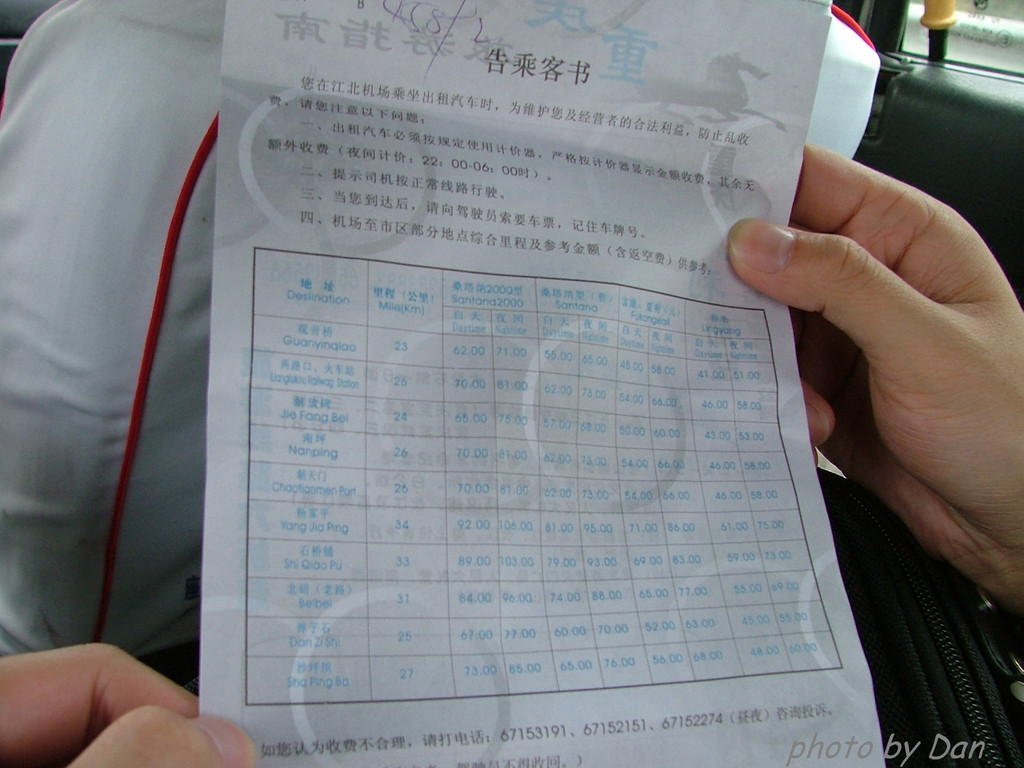 重庆
旅游指南
告乘客书
您在江北机场乘坐出租汽车时，为维护您及经营者的合法利益，防止乱收
费，请您注意以下问题：
一、出租汽车必须按规定使用计价器，严格按计价器显示金额收费，其余无
额外收费（夜间计价：22：00-06：00时）。
二、提示司机按正常线路行驶。
三、当您到达后，请向驾驶员索要车票，记住车牌号。
四、机场至市区部分地点综合里程及参考金额（含返空费）供参考：
地址 里程（公里） 桑塔纳2000型 桑塔纳型（普）
Deslination Mile(Km) Santana2000 Santana Fukangeall Lingyang
白天 夜间 白天 夜间 白天 夜间 白天 夜间
Daytime Nighttime Daytime Nighttime Daytime Nighttime Daytime Nighttime
观音桥
Guanyinqiao 23 62.00 71.00 55.00 65.00 48.00 58.00 41.00 51.00
两路口、火车站
Lianglukou Railwag Station 26 70.00 81.00 62.00 73.00 54.00 66.00 46.00 58.00
解放碑
Jie Fang Bei 24 65.00 75.00 57.00 68.00 50.00 60.00 43.00 53.00
南坪
Nanping 26 70.00 81.00 62.00 73.00 54.00 66.00 46.00 58.00
朝天门
Chaotianmen Port 26 70.00 81.00 62.00 73.00 54.00 66.00 46.00 58.00
杨家坪
Yang Jia Ping 34 92.00 106.00 81.00 95.00 71.00 86.00 61.00 75.00
石桥铺
Shi Qiao Pu 33 89.00 103.00 79.00 93.00 69.00 83.00 59.00 73.00
北碚（老路）
Beibei 31 84.00 96.00 74.00 88.00 65.00 77.00 55.00 69.00
弹子石
Dan Zi Shi 25 67.00 77.00 60.00 70.00 52.00 63.00 45.00 55.00
沙坪坝
Sha Ping Ba 27 73.00 85.00 65.00 76.00 56.00 68.00 48.00 60.00
如您认为收费不合理，请打电话：67153191、67152151、67152274（昼夜）咨询投诉。
驾驶员不得收回。）
photo by Dan